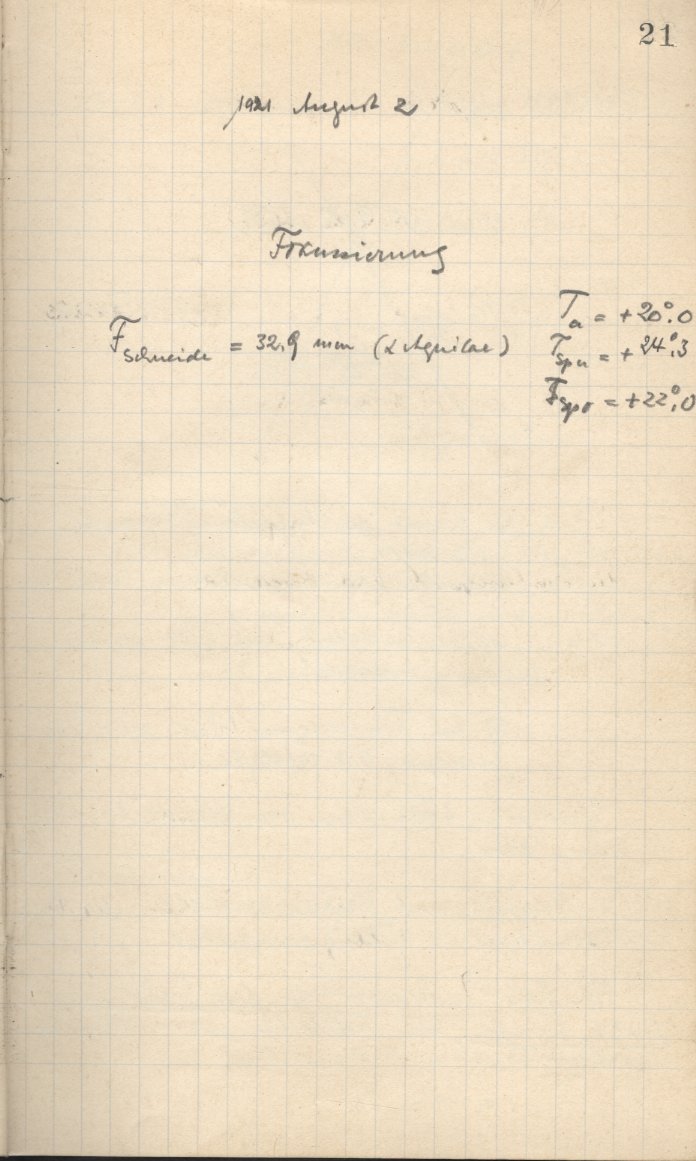 21
1921 August 2
Fokussierung
F Schneide = 32,9 mm (α Aquilae)
T a = +20°.0
T sp u = +24°.3
T sp o = +22°.0